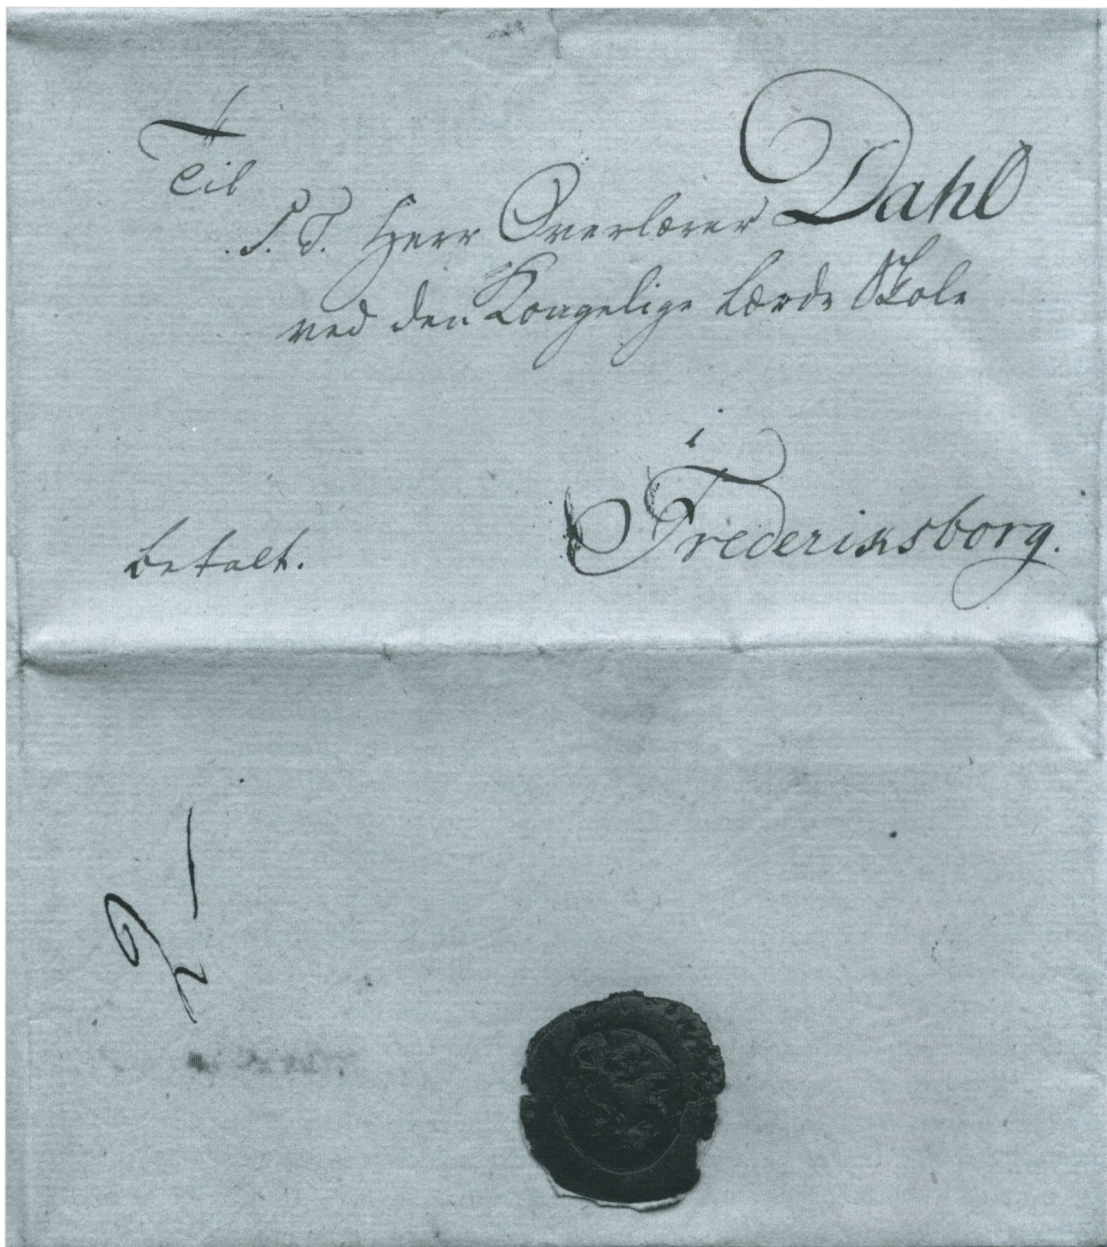 Til
S. T. Herr Overlærer Dahl
ved den Kongelige lærde Skole
i
Frederiksborg.
betalt.